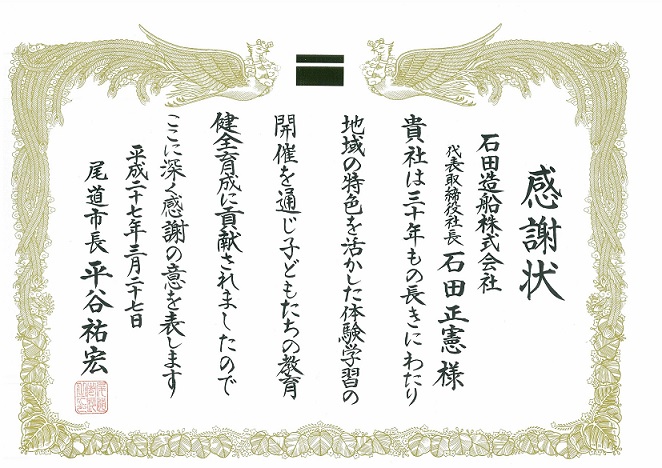 感謝状
石田造船株式会社
代表取締役社長 石田正憲様
貴社は三十年もの長きにわたり
地域の特色を活かした体験学習の
開催を通じ子どもたちの教育
健全育成に貢献されましたので
ここに深く感謝の意を表します
平成二十七年三月二十七日
尾道市長 平谷祐宏